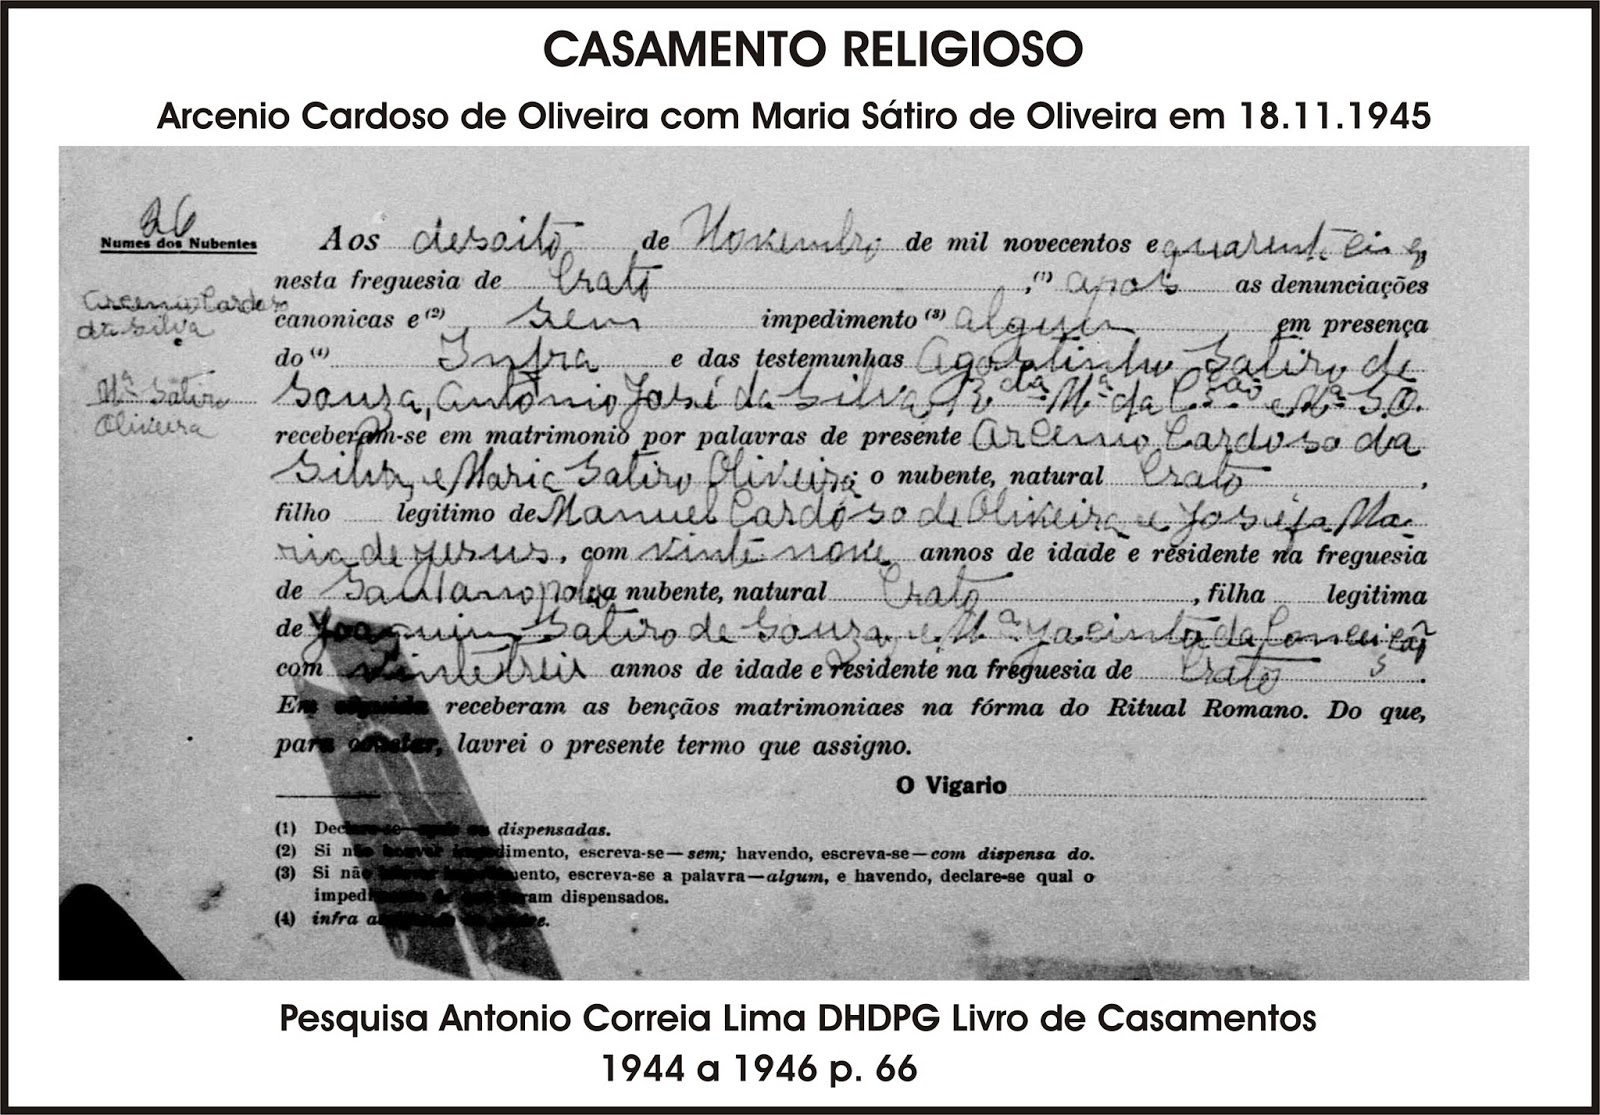 CASAMENTO RELIGIOSO
Arcenio Cardoso de Oliveira com Maria Sátiro de Oliveira em 18.11.1945
26
Numes dos Nubentes
Arcenio Cardoso
da Silva
Mª Sátiro
Oliveira
Aos desoito de Novembro de mil novecentos e quarent.
nesta freguesia de Crato ,(1) apos as denunciações
canonicas e (2) sem impedimento (3) algum em presença
do (4) Infra e das testemunhas Agostinho Satiro de
Souza, Antônio José da Silva Mª da C.ção e Mª S.O.
receberam-se em matrimonio por palavras de presente Arcenio Cardoso da
Silva, e Maria Satiro Oliveira; o nubente, natural Crato ,
filho legitimo de Manuel Cardoso de Oliveira e Josefa Ma-
ria de Jesus, com vinte nove annos de idade e residente na freguesia
de Santanopole a nubente, natural Crato , filha legitima
de Joaquim Satiro de Souza, e Mª Jacinta da Conceição
com annos de idade e residente na freguesia de Crato .
Em receberam as bençãos matrimoniaes na fórma do Ritual Romano. Do que,
para constar, lavrei o presente termo que assigno.
O Vigario
(1) Declare-se—após ou dispensadas.
(2) Si não houver impedimento, escreva-se—sem; havendo, escreva-se—com dispensa do.
(3) Si não houver impedimento, escreva-se a palavra—algum, e havendo, declare-se qual o
impedimento de que foram dispensados.
(4) infra
Pesquisa Antonio Correia Lima DHDPG Livro de Casamentos
1944 a 1946 p. 66